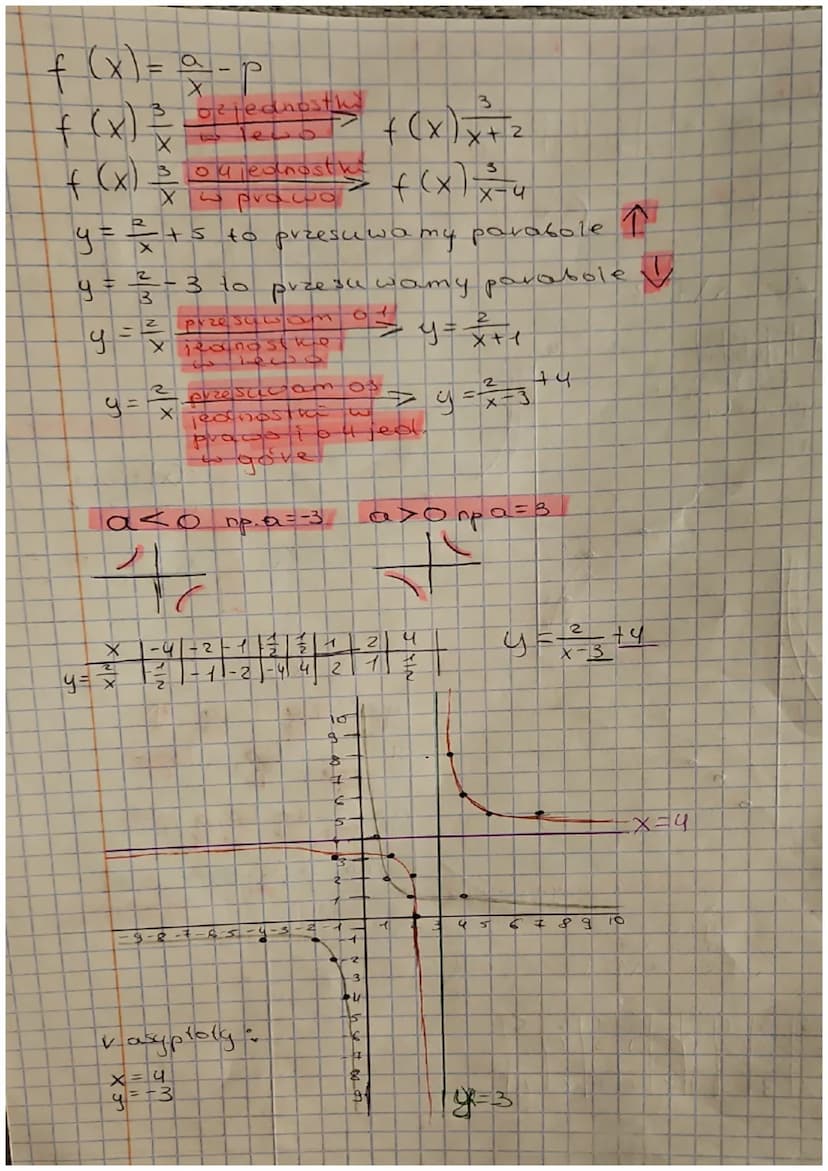 f(x) = a/x - p
f(x) 3/x o 2 jednostki w lewo → f(x) 3/x+2
f(x) 3/x o 4 jednostki w prawo → f(x) 3/x-4
y = 2/x + 5 to przesuwamy parabole ↑
y = 2/3 - 3 to przesuwamy parabole ↓
y = 2/x przesuwam o 1 jednostkę w lewo => y = 2/x+1
y = 2/x przesuwam o 3 jednostki w prawo i o 4 jed. w górę => y = 2/x-3 + 4
a < 0 np. a = -3 a > 0 np a = 3
x | -4 | -2 | -1 | -1/2 | 1/2 | 1 | 2 | 4 |
y = 2/x | -1/2 | -1 | -2 | -4 | 4 | 2 | 1 | 1/2 |
y = 2/x-3 + 4
10
9
8
7
6
5
4
3
2
1
x = 4
-9 -8 -7 -6 -5 -4 -3 -2 -1 1 2 3 4 5 6 7 8 9 10
-1
-2
3
4
5
6
7
8
9
v asyptoty:
x = 4
y = -3
y = 3